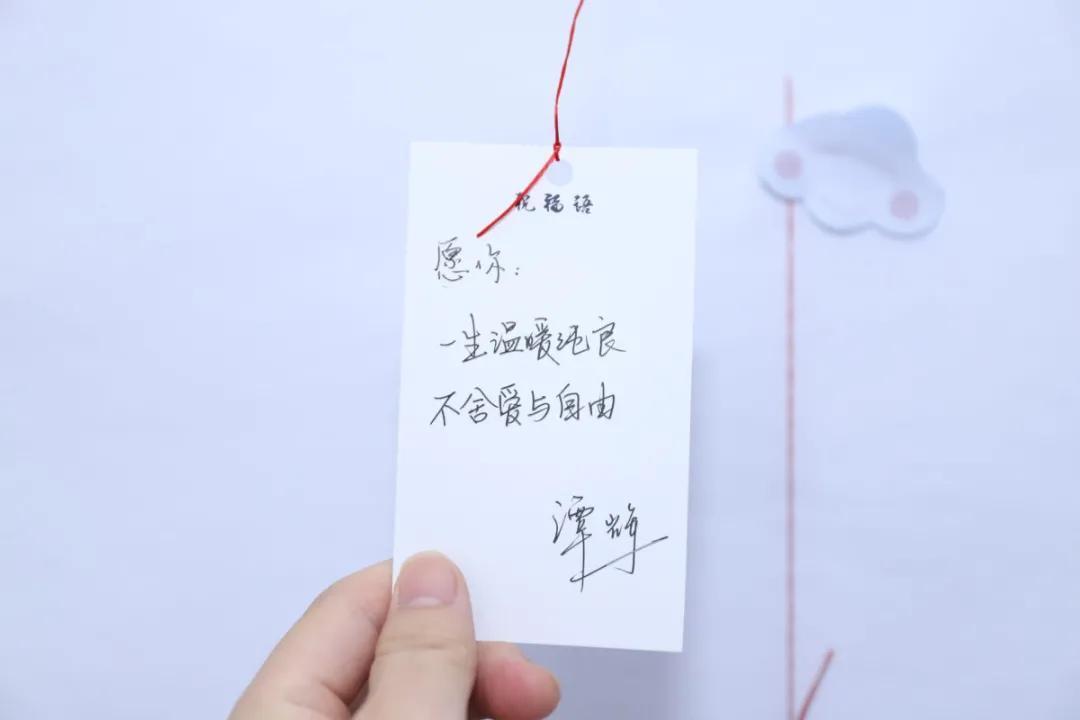 祝福语
愿你:
一生温暖纯良
不舍爱与自由
谭辉